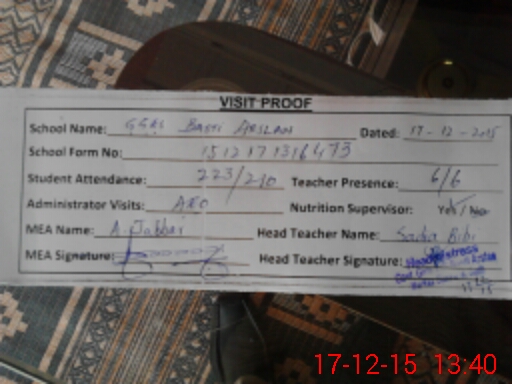 VISIT PROOF
School Name: GGES Basti Arslan Dated: 17-12-2015
School Form No: 1512171316473
Student Attendance: 223/210 Teacher Presence: 6/6
Administrator Visits: AEO Nutrition Supervisor: Yes/No
MEA Name: A. Jabbar Head Teacher Name: Sadia Bibi
MEA Signature: Head Teacher Signature: Headmistress
17-12-15 13:40